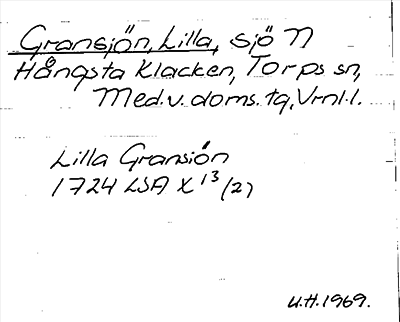 Gransjön, Lilla, sjö N
Hångsta Klacken, Torps sn,
Med.v.doms.tg, Vrnl.l.
Lilla Gransjön
1724 LSA X 13/27
U.H. 1969.